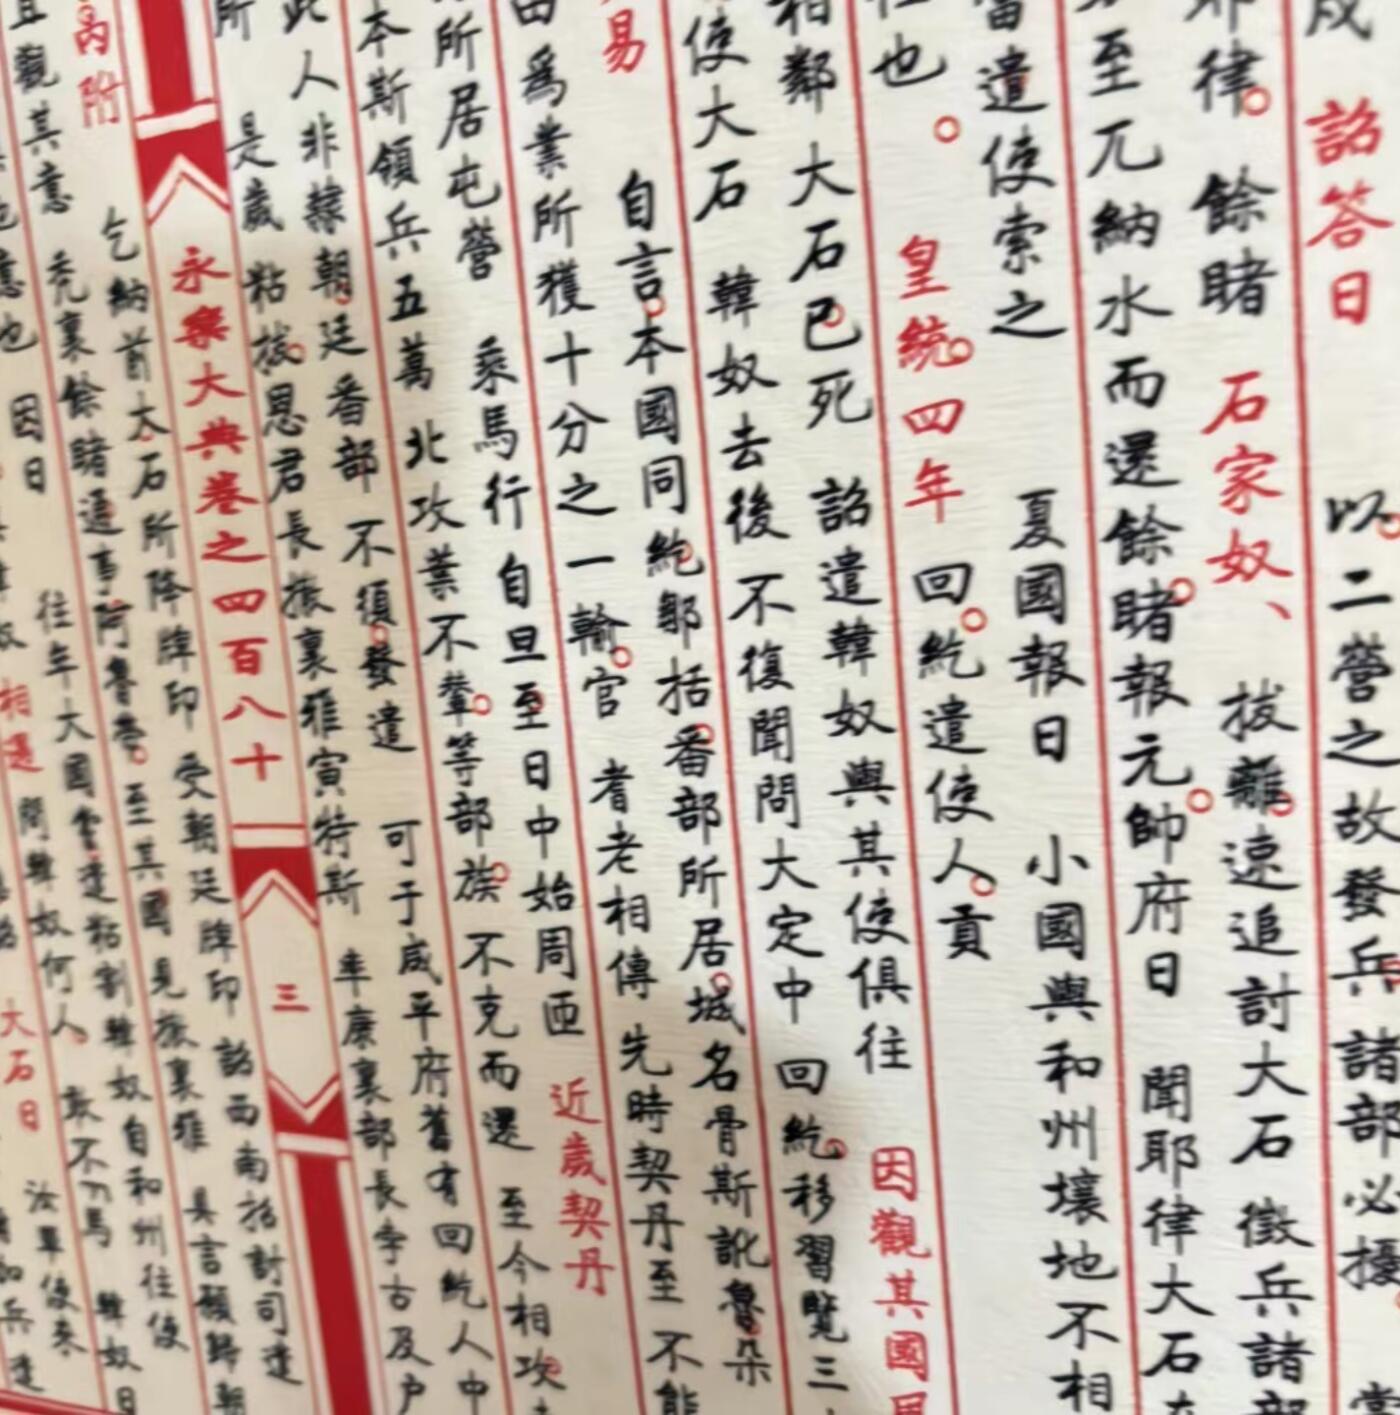 詔答曰 以二營之故發兵諸部必擾
耶律餘睹 石家奴 拔離速追討大石徵兵諸部
至兀納水而還餘睹報元帥府曰 聞耶律大石
當遣使索之 夏國報曰 小國與和州壤地不相
也 皇統四年 回紇遣使人貢 因觀其國
相鄰大石已死 詔遣韓奴與其使俱往
使大石 韓奴去後不復聞問大定中 回紇移習覽三
易 自言本國同紇鄔括番部所居城名骨斯訛魯朵
田為業所獲十分之一輸官 耆老相傳 先時契丹至不能
所居屯營 乘馬行自旦至日中始周匝 近歲契丹
本斯領兵五萬北攻葉不輦等部族 不克而還 至今相攻
此人非隸朝廷番部不須發遣 可于咸平府舊有回紇人中
所 是歲 粘拔恩君長撒里雅寅特斯 率康里部長孛古及户
永樂大典卷之四百八十 三
乞納前大石所降牌印 受朝廷牌印 詔西南招討司遣
禿里餘睹通事阿魯帶至其國見撒里雅 具言願歸朝
且觀其意 往年大國嘗遣粘割韓奴自和州往使
因曰
相遇 問韓奴何人 敢不下馬 韓奴曰
大石曰 汝單使來